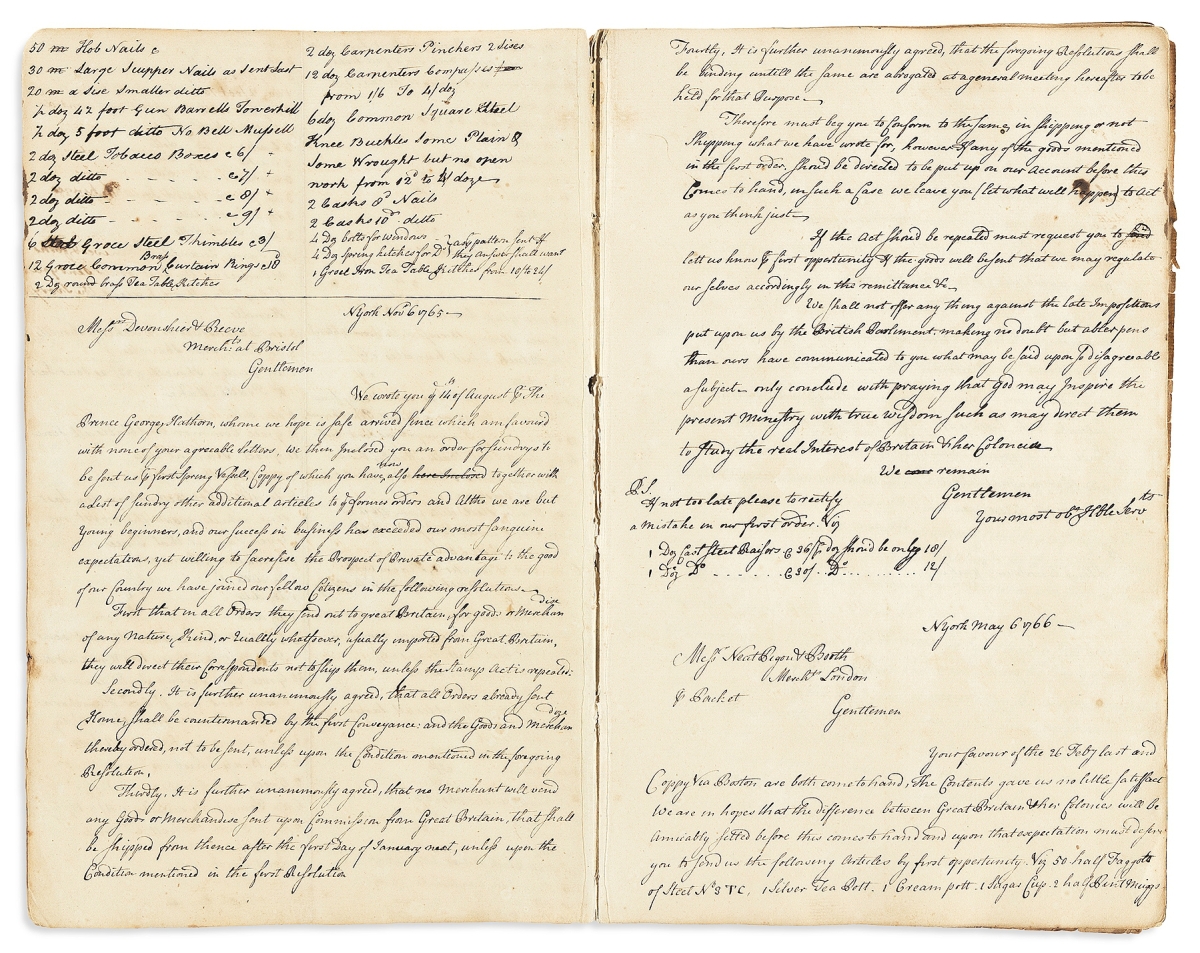 50 m Hob Nails c
30 m Large Scupper Nails as Sent Last
20 m a Size Smaller ditto
½ doz 4½ foot Gun Barrells Torverhill
½ doz 5 foot ditto No Bell Mussell
2 doz Steel Tobacco Boxes c 6/ +
2 doz ditto - - - - c 7/ +
2 doz ditto - - - - c 8/ +
2 doz ditto - - - - c 9/ +
6 Groce Steel Thimbles c 3/
12 Groce Common Brass Curtain Rings c 18
2 Doz round brass Tea Table Kitches
2 doz Carpenters Pinchers 2 Sises
12 doz Carpenters Compasses
from 1/6 To 4/ doz
6 doz Common Square Steel
Knee Buckles Some Plain &
Some Wrought but no open
work from 12d to 4/ doze
2 Casks 8d Nails
2 Casks 10d ditto
4 Dz bolts for windows } as pr pattern sent If
4 Dz Spring kitches for Do } they answer shall want
1 Groce Iron Tea Table Kitches from 18/ & 24/
NYork Novr 6 1765
Messrs Devonshier & Reeve
Merchts at Bristol
Gentlemen
We wrote you ye 14th of August pr The
Prence George, Hathorn, whome we hope is safe arrived since which am favourd
with none of your agreeable letters, we then Inclosed you an order for Sundrys to
be sent us pr first Spring Vessell, Coppy of which you have now also here Inclosed together with
a List of Sundry other additional articles to ye former orders and Altho we are but
Young beginners, and our success in business has exceeded our most sanguine
expectations, yet willing to sacrefise the Prospect of Private advantage to the good
of our Country we have joined our fellow Citizens in the following resolutions
First that in all Orders they send out to great Britain, for goods or Merchandize
of any Nature, Kind, or Quallity whatsoever, usually imported from Great Britain,
they will direct their Correspondents not to ship them, unless the Stamp Act is repealed:
Secondly. It is further unanimously agreed, that all Orders already sent
Home, shall be countermanded by the first Conveyance: and the Goods and Merchandoze
thereby ordered, not to be sent, unless upon the Condition mentioned in the foregoing
Resolution.
Thirdly. It is further unanimously agreed, that no Merchant will vend
any Goods or Merchandise sent upon Commission from Great Britain, that shall
be shipped from thence after the first Day of January next, unless upon the
Condition mentioned in the first Resolution
Fourthly, It is further unanimously agreed, that the foregoing Resolutions shall
be binding untill the same are abrogated at a general meeting hereafter to be
held for that Purpose
Therefore must beg you to Conform to the same, in Shipping or not
Shipping what we have wrote for, however If any of the goods mentioned
in the first order, should be directed to be put up on our Account before this
Comes to hand, in such a Case we leave you (let what will happen) to Act
as you think just
If the Act should be repealed must request you to send
lett us know pr first opportunity If the goods will be sent that we may regulate
our selves accordingly in the remittance &c
We shall not offer any thing against the late Impositions
put upon us by the British Parliment, making no doubt but abler pens
than ours have communicated to you what may be said upon so disagreable
a subject - only conclude with praying that God may Inspire the
present Ministry with true Wisdom such as may direct them
to study the real Interest of Britain & her Colonies
We remain
Gentlemen
Your most obt Hble Servts
P.S.
If not too late please to rectify
a mistake in our first order Viz
1 Doz Cast Steel Raisors c 36/ pr doz should be only 18/
1 Doz Do - - - - - - c 30/ - Do - - - - - - 12/
NYork May 6 1766
Messrs Neat Pigou & Booth
Merchts London
pr Packet
Gentlemen
Your favour of the 26 Feby last and
Coppy Via Boston are both come to hand, The Contents gave us no little satisfact
We are in hopes that the difference between Great Britain & her Colonies will be
Amicably setled before this comes to hand and upon that expectation must desire
you to send us the following Articles by first opportunity. Viz 50 half Faggots
of Steel No 3 TC, 1 Silver Tea Pott. 1 Cream pott. 1 Sugar Cup. 2 half Pint Muggs